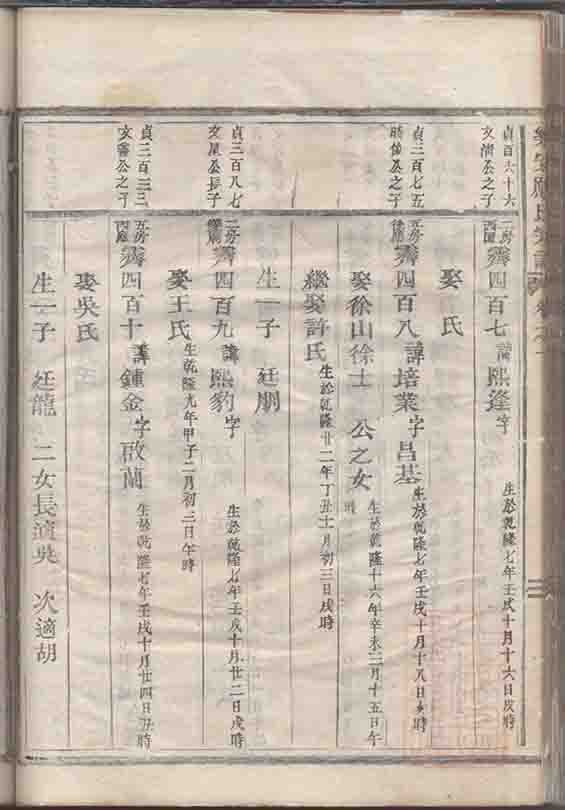 氏宗譜
貞百六十六
文清公之子
二房西園霽四百七 諱熙逢字 生於乾隆七年壬戌十月十六日戌時
娶 氏
貞三百七五
公之子
霽四百八 諱培業字昌基 生於乾隆七年壬戌十月十八日亥時
娶徐山徐士 公之女 生於乾隆十六年辛未二月十五日午時
繼娶許氏 生於乾隆廿二年丁丑十一月初三日戌時
生一子 廷朋
貞三百八七
文星公長子
二房霽四百九 諱熙豹字 生於乾隆七年壬戌十月廿二日戌時
娶王氏 生乾隆九年甲子二月初三日午時
貞三百三三
文霽公之子
五房霽四百十 諱鍾金字啟蘭 生於乾隆七年壬戌十月廿四日丑時
娶吳氏
生一子 廷龍 二女長適吳 次適胡